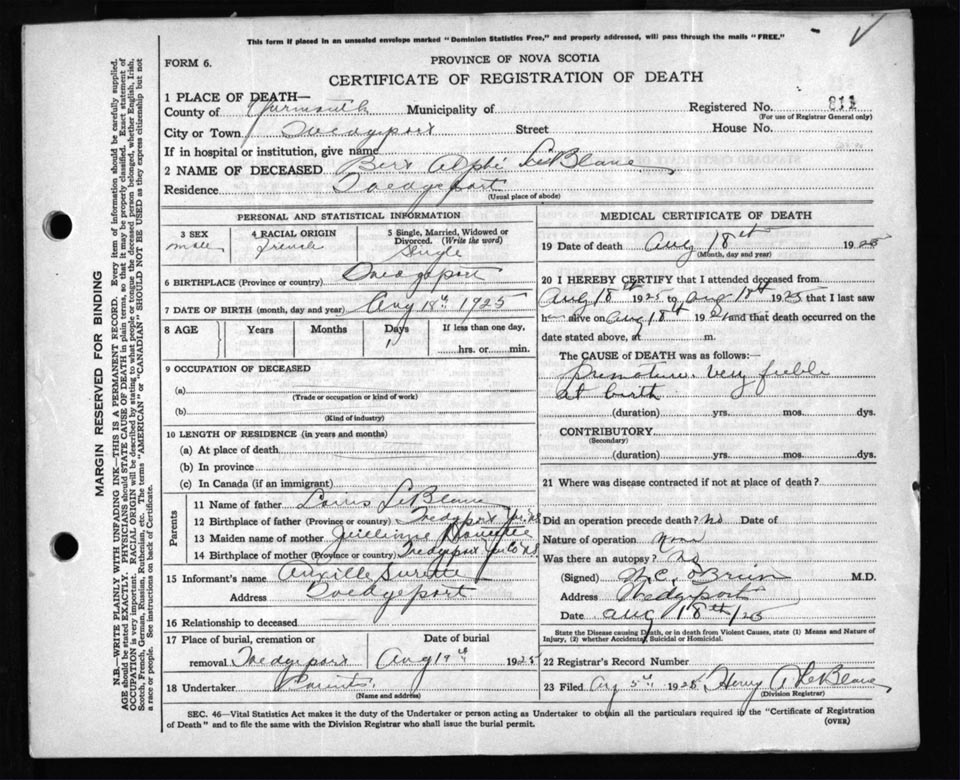 This form if placed in an unsealed envelope marked "Dominion Statistics Free," and properly addressed, will pass through the mails "FREE."
FORM 6.
PROVINCE OF NOVA SCOTIA
CERTIFICATE OF REGISTRATION OF DEATH
1 PLACE OF DEATH—
County of Yarmouth Municipality of
Registered No. 811
(For use of Registrar General only)
City or Town Wedgeport Street House No.
If in hospital or institution, give name
2 NAME OF DECEASED Bert Alphé LeBlanc
Residence Wedgeport
(Usual place of abode)
PERSONAL AND STATISTICAL INFORMATION
3 SEX male
4 RACIAL ORIGIN French
5 Single, Married, Widowed or Divorced. (Write the word) Single
6 BIRTHPLACE (Province or country) Wedgeport
7 DATE OF BIRTH (month, day and year) Aug 18th 1925
8 AGE Years Months Days If less than one day,
1
hrs. or min.
9 OCCUPATION OF DECEASED
(a)
(Trade or occupation or kind of work)
(b)
(Kind of industry)
10 LENGTH OF RESIDENCE (in years and months)
(a) At place of death
(b) In province
(c) In Canada (if an immigrant)
Parents
11 Name of father Louis LeBlanc
12 Birthplace of father (Province or country) Wedgeport
13 Maiden name of mother
14 Birthplace of mother (Province or country) Wedgeport Yar Co NS
15 Informant's name Surette
Address Wedgeport
16 Relationship to deceased
17 Place of burial, cremation or removal Wedgeport
Date of burial Aug 19th 1925
18 Undertaker Parents
(Name and address)
MEDICAL CERTIFICATE OF DEATH
19 Date of death Aug 18th 1925
(Month, day and year)
20 I HEREBY CERTIFY that I attended deceased from
Aug 18th 1925 to Aug 18th 1925 that I last saw
h alive on Aug 18th 192 and that death occurred on the
date stated above, at m.
The CAUSE OF DEATH was as follows:—
Premature. Very feeble
at birth
(duration) yrs. mos. dys.
CONTRIBUTORY
(Secondary)
(duration) yrs. mos. dys.
21 Where was disease contracted if not at place of death?
Did an operation precede death? No Date of
Nature of operation None
Was there an autopsy? No
(Signed) M.C. O'Brien M.D.
Address Wedgeport
Date Aug 18th/25
State the Disease causing Death, or in death from Violent Causes, state (1) Means and Nature of
Injury, (2) whether Accidental, Suicidal or Homicidal.
22 Registrar's Record Number
23 Filed 5th 1925 Henry A LeBlanc
(Division Registrar)
SEC. 46—Vital Statistics Act makes it the duty of the Undertaker or person acting as Undertaker to obtain all the particulars required in the "Certificate of Registration
of Death" and to file the same with the Division Registrar who shall issue the burial permit.
(OVER)
MARGIN RESERVED FOR BINDING
N.B.—WRITE PLAINLY WITH UNFADING INK—THIS IS A PERMANENT RECORD. Every item of information should be carefully supplied.
AGE should be stated EXACTLY. PHYSICIANS should STATE CAUSE OF DEATH in plain terms, so that it may be properly classified. Exact statement of
OCCUPATION is very important. RACIAL ORIGIN will be described by stating to what people or tongue the deceased person belonged, whether English, Irish,
Scotch, French, German, Russian, Ruthenian, etc. The terms "AMERICAN" or "CANADIAN" SHOULD NOT BE USED as they express citizenship but not
a race or people. See instructions on back of Certificate.